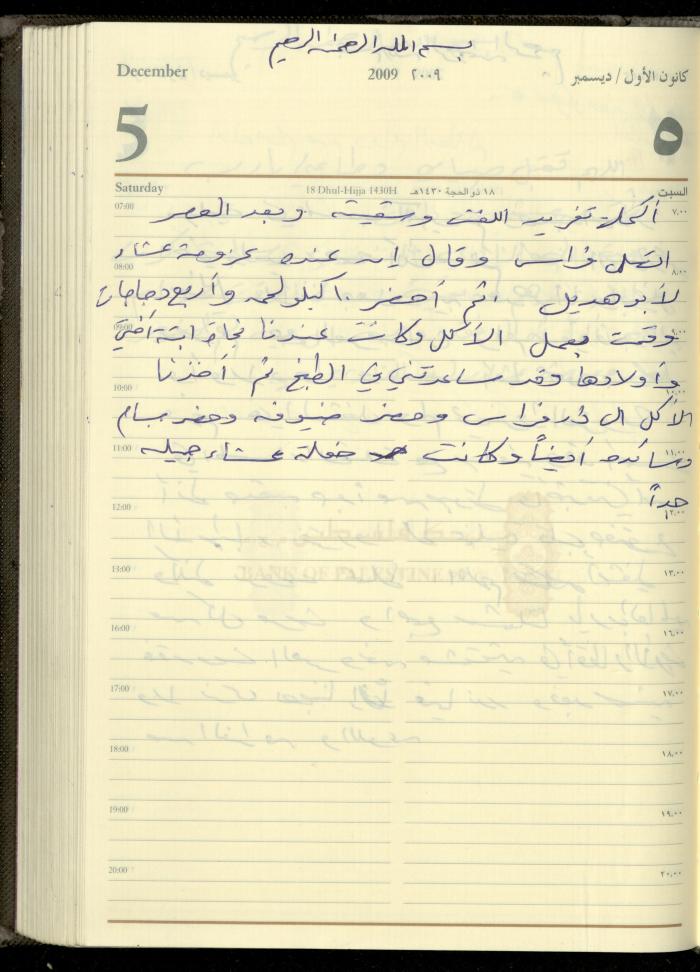 بسم الله الرحمن الرحيم
December 2009 ٢٠٠٩ كانون الأول / ديسمبر
5 ٥
Saturday 18 Dhul-Hijja 1430H ١٨ ذو الحجة ١٤٣٠هـ السبت
07:00 أكملت تغريد اللفت وسقيته وبعد العصر ٧,٠٠
اتصل فراس وقال إنه عنده عزومة عشاء
08:00 لأبو هديل . ثم أحضر ١٠ كيلو لحمه وأربع دجاجات ٨,٠٠
09:00 وقمت بعمل الأكل وكانت عندنا نجاح ابنة أختي ٩,٠٠
وأولادها وقد ساعدتني في الطبخ ثم أخذنا
10:00 الأكل الى دار فراس وحضر ضيوفه وحضر بسام ١٠,٠٠
11:00 وسائده أيضاً وكانت حفلة عشاء جميله ١١,٠٠
جداً
12:00 ١٢,٠٠
BANK OF PALESTINE
13:00 ١٣,٠٠
16:00 ١٦,٠٠
17:00 ١٧,٠٠
18:00 ١٨,٠٠
19:00 ١٩,٠٠
20:00 ٢٠,٠٠